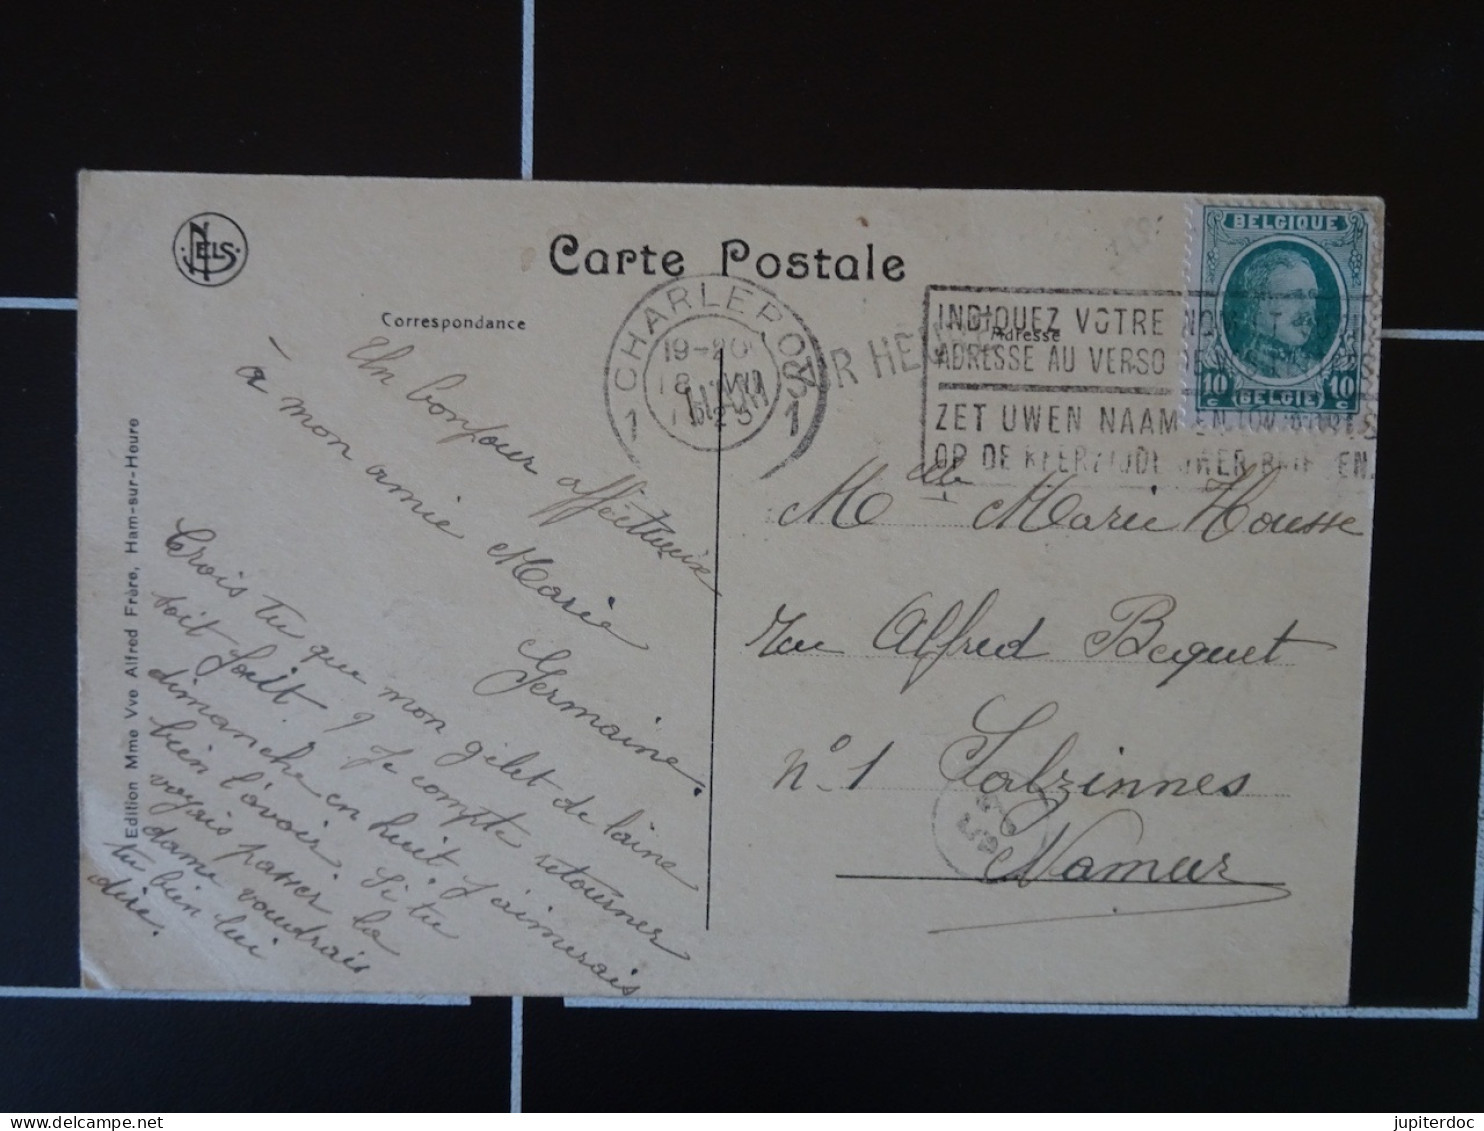 NELS
Carte Postale
Correspondance
Adresse
CHARLEROI
19-20
18
1 1
HAM
SUR HEURE
INDIQUEZ VOTRE NOM ET
ADRESSE AU VERSO DE
ZET UWEN NAAM EN
OP DE KEERZIJDE UWER BRIEVEN.
BELGIQUE
10 c 10 c
BELGIË
Un bonjour affectueux
à mon amie Marie
Germaine.
Crois tu que mon gilet de laine
soit fait ? Je compte retourner
dimanche en huit, j'aimerais
bien l'avoir. Si tu
voyais passer la
dame voudrais
tu bien lui
dire.
Melle Marie Housse
Rue Alfred Bequet
n° 1 Salzinnes
Namur
Edition Mme Vve Alfred Frère, Ham-sur-Heure
jupiterdoc